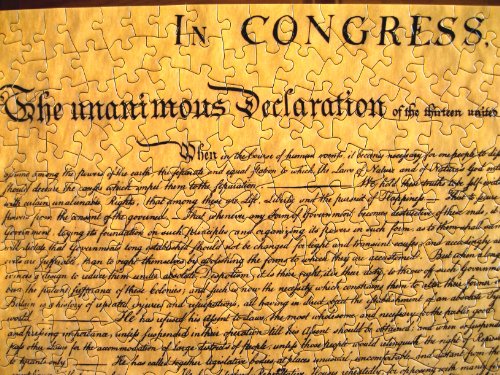 IN CONGRESS,
The unanimous Declaration of the thirteen united
When in the Course of human events, it becomes necessary for one people to
assume among the powers of the earth, the separate and equal station to which the Laws of Nature and of Nature's God
should declare the causes which impel them to the separation. We hold these truths to be self
with certain unalienable Rights, that among these are Life, Liberty and the pursuit of Happiness. That to
powers from the consent of the governed. That whenever any Form of Government becomes destructive of these ends
Government, laying its foundation on such principles and organizing its powers in such form, as to them shall
will dictate that Governments long established should not be changed for light and transient causes; and accordingly
evils are sufferable, than to right themselves by abolishing the forms to which they are accustomed. But when a long
evinces a design to reduce them under absolute Despotism, it is their right, it is their duty, to throw off such Government
been the patient sufferance of these Colonies; and such is now the necessity which constrains them to alter their former
Britain is a history of repeated injuries and usurpations, all having in direct object the establishment of an absolute
world. He has refused his Assent to Laws, the most wholesome and necessary for the public good
and pressing importance, unless suspended in their operation till his Assent should be obtained; and when so suspended
pass other Laws for the accommodation of large districts of people, unless those people would relinquish the right of
to tyrants only. He has called together legislative bodies at places unusual, uncomfortable, and distant from